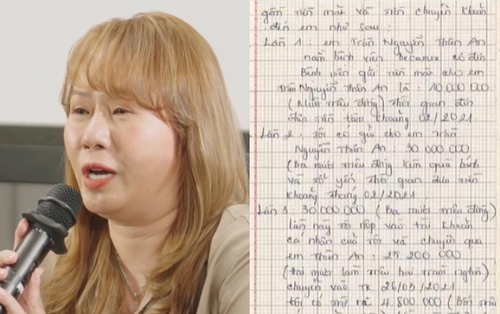 gồm tiền mặt và tiền chuyển khoản
đến em như sau:
Lần 1: em Trần Nguyễn Thiên An
nằm bệnh viện Becamex có đến
bệnh viện gửi tiền mặt cho em
Trần Nguyễn Thiên An là: 10 000 000
(Mười triệu đồng) thời gian đến
đưa tiền tầm khoảng 02/2021
Lần 2: Tôi có gửi cho em Trần
Nguyễn Thiên An: 30 000 000
(Ba mươi triệu đồng)
và thời gian đưa tiền
khoảng tháng 02/2021
Lần 3: 30 000 000 (Ba mươi triệu đồng)
lần này tôi nộp vào tài khoản
cá nhân của tôi và chuyển qua
em Thiên An: 25 200 000
(hai mươi lăm triệu hai trăm nghìn)
chuyển vào TK 26/03/2021
tôi có 4 800 000 (Bốn triệu